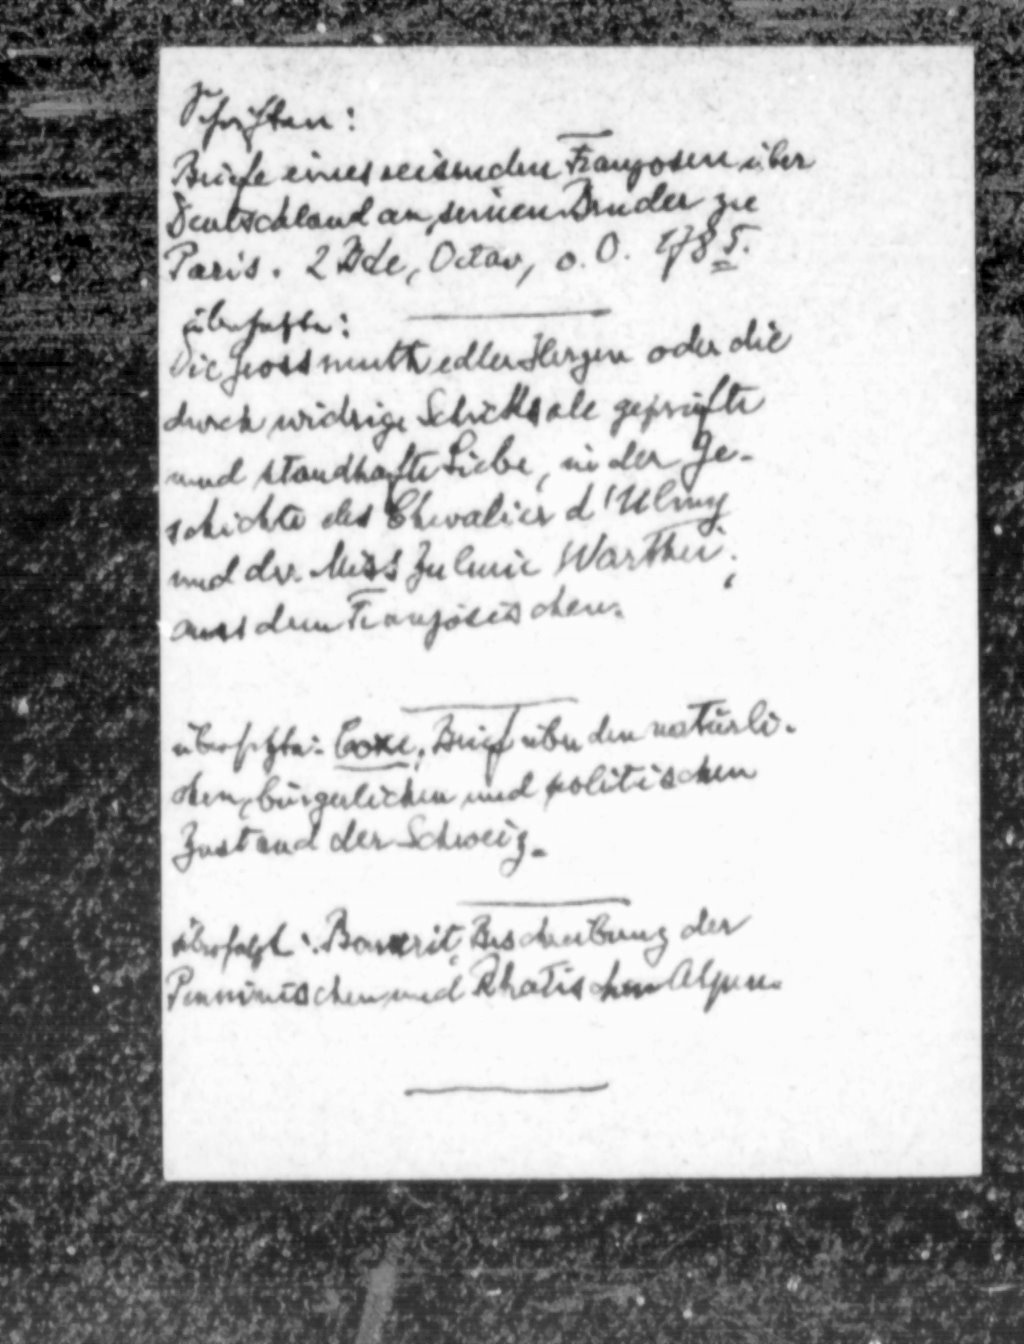 Schriften:
Briefe eines reisenden Franzosen über
Deutschland an seinen Bruder zu
Paris. 2 Bde, Octav, o. O. 1785.
übersetzte:
Die Grossmuth edler Herzen oder die
durch widrige Schicksale geprüfte
und standhafte Liebe, in der Ge-
schichte des Chevalier d'Ulmy
und der Miss Zulmie Warthei;
aus dem Französischen.
übersetzte: Coxe, Brief über den natürli-
chen, bürgerlichen und politischen
Zustand der Schweiz.
übersetzt: Bourrit, Beschreibung der
Penninischen und Rhätischen Alpen.